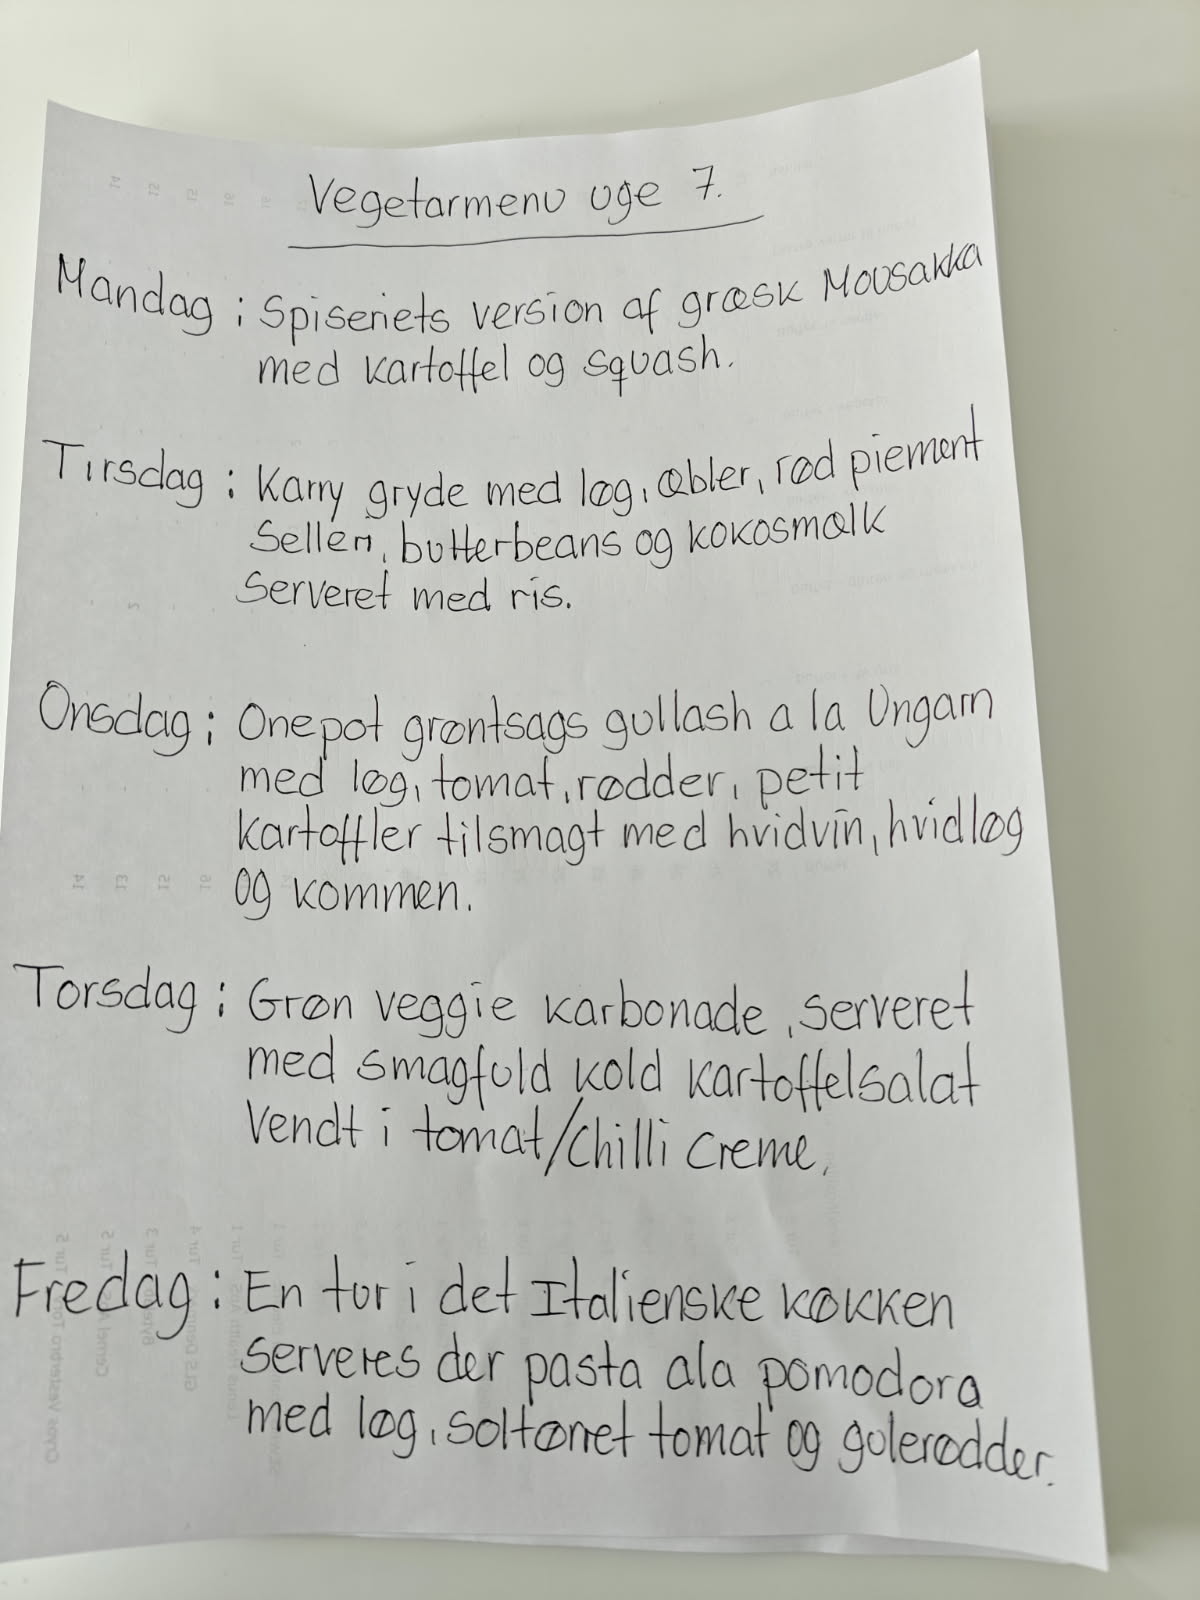 Vegetarmenu uge 7.
Mandag : Spiseriets version af græsk Mousakka
med kartoffel og squash.
Tirsdag : Karry gryde med løg, æbler, rød piement
Selleri, butterbeans og kokosmælk
Serveret med ris.
Onsdag : Onepot grøntsags gullash a la Ungarn
med løg, tomat, rødder, petit
kartoffler tilsmagt med hvidvin, hvidløg
og kommen.
Torsdag : Grøn veggie karbonade, serveret
med smagfuld kold kartoffelsalat
Vendt i tomat/Chilli Creme.
Fredag : En tur i det Italienske køkken
serveres der pasta ala pomodora
med løg, soltørret tomat og gulerødder.